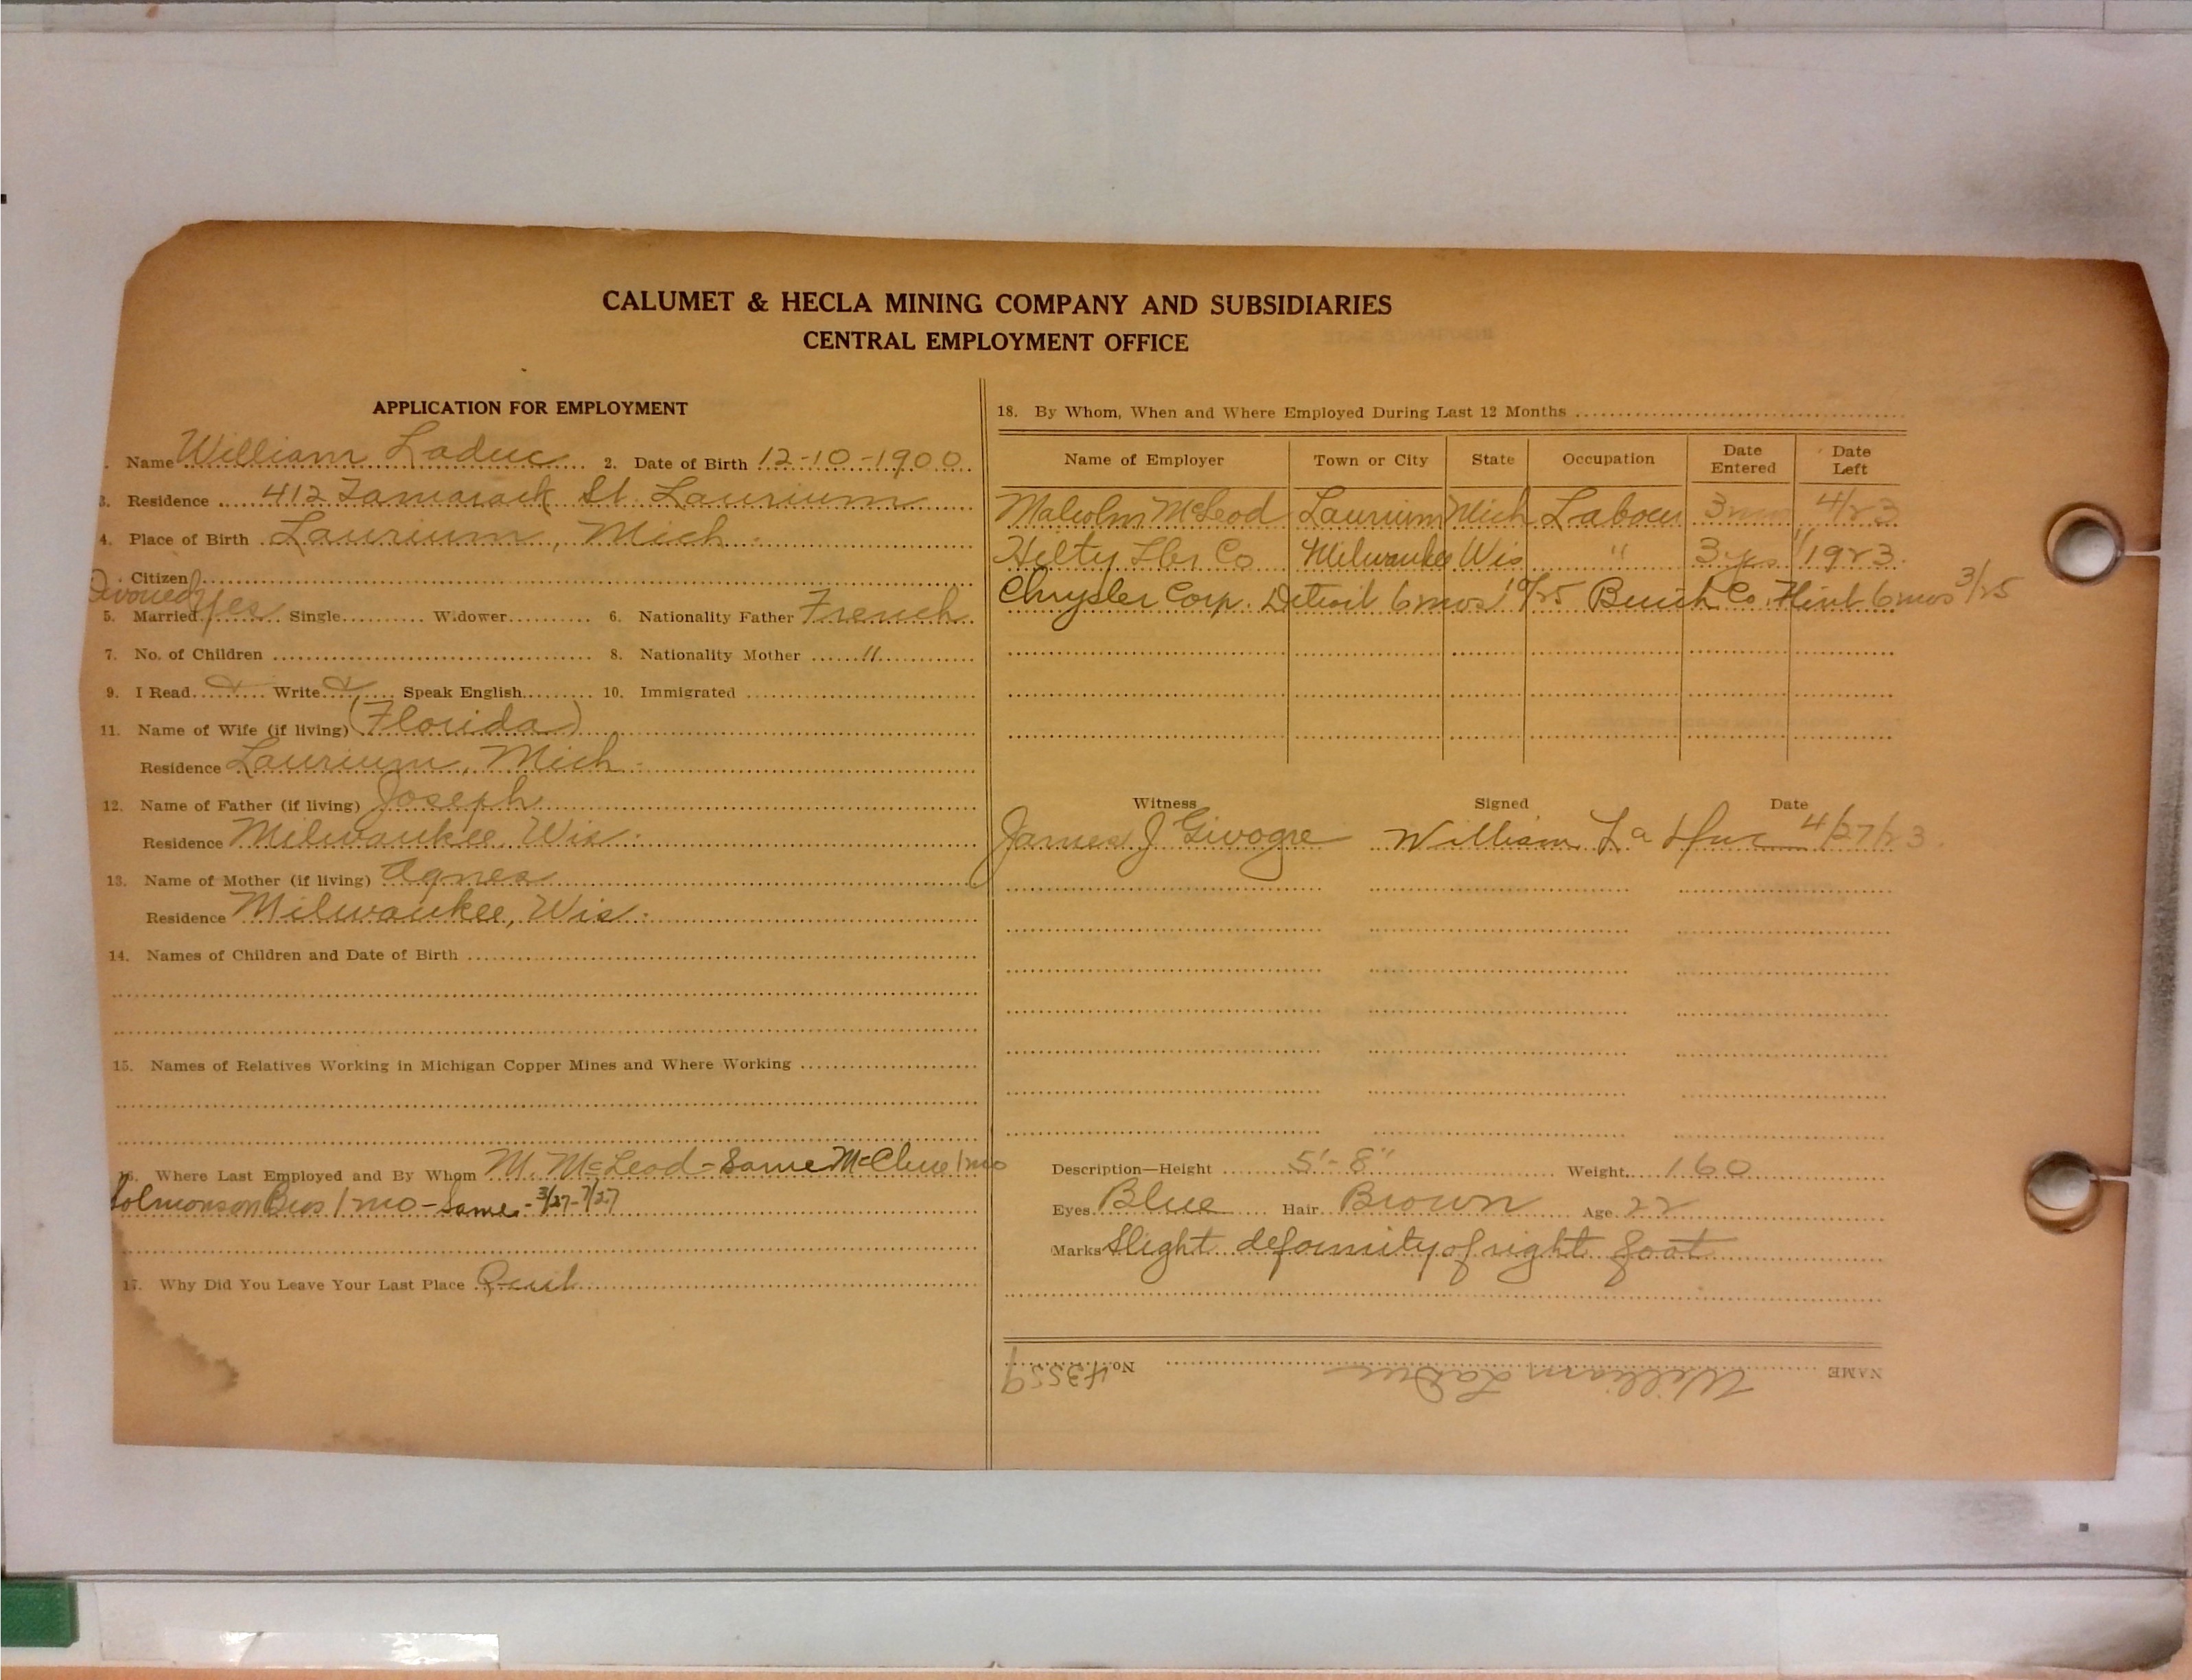 CALUMET & HECLA MINING COMPANY AND SUBSIDIARIES
CENTRAL EMPLOYMENT OFFICE
APPLICATION FOR EMPLOYMENT
. Name William Laduc 2. Date of Birth 12-10-1900
3. Residence 412 Tamarack St. Laurium
4. Place of Birth Laurium, Mich.
Citizen
Divorced
5. Married yes Single Widower 6. Nationality Father French
7. No. of Children 8. Nationality Mother "
9. I Read Write Speak English 10. Immigrated
11. Name of Wife (if living) (Florida)
Residence Laurium, Mich.
12. Name of Father (if living) Joseph
Residence Milwaukee, Wis.
13. Name of Mother (if living) Agnes
Residence Milwaukee, Wis.
14. Names of Children and Date of Birth
15. Names of Relatives Working in Michigan Copper Mines and Where Working
16. Where Last Employed and By Whom M. McLeod - Same McClure 1 mo
Solmonson Bros 1 mo - Same - 3/27 - 7/27
17. Why Did You Leave Your Last Place Quit
18. By Whom, When and Where Employed During Last 12 Months
Name of Employer Town or City State Occupation Date Entered Date Left
Malcolm McLeod Laurium Mich Labour 3 mos 4/23
Hilty Lbr Co Milwaukee Wis " 3 yrs 1/1923.
Chrysler Corp. Detroit 6 mos 10/25 Buick Co. Flint 6 mos 3/25
Witness Signed Date
James J Givogre William La Duc 4/27/23.
Description—Height 5'-8" Weight 160
Eyes Blue Hair Brown Age 22
Marks Slight deformity of right foot
NAME William LaDuc No. 43559